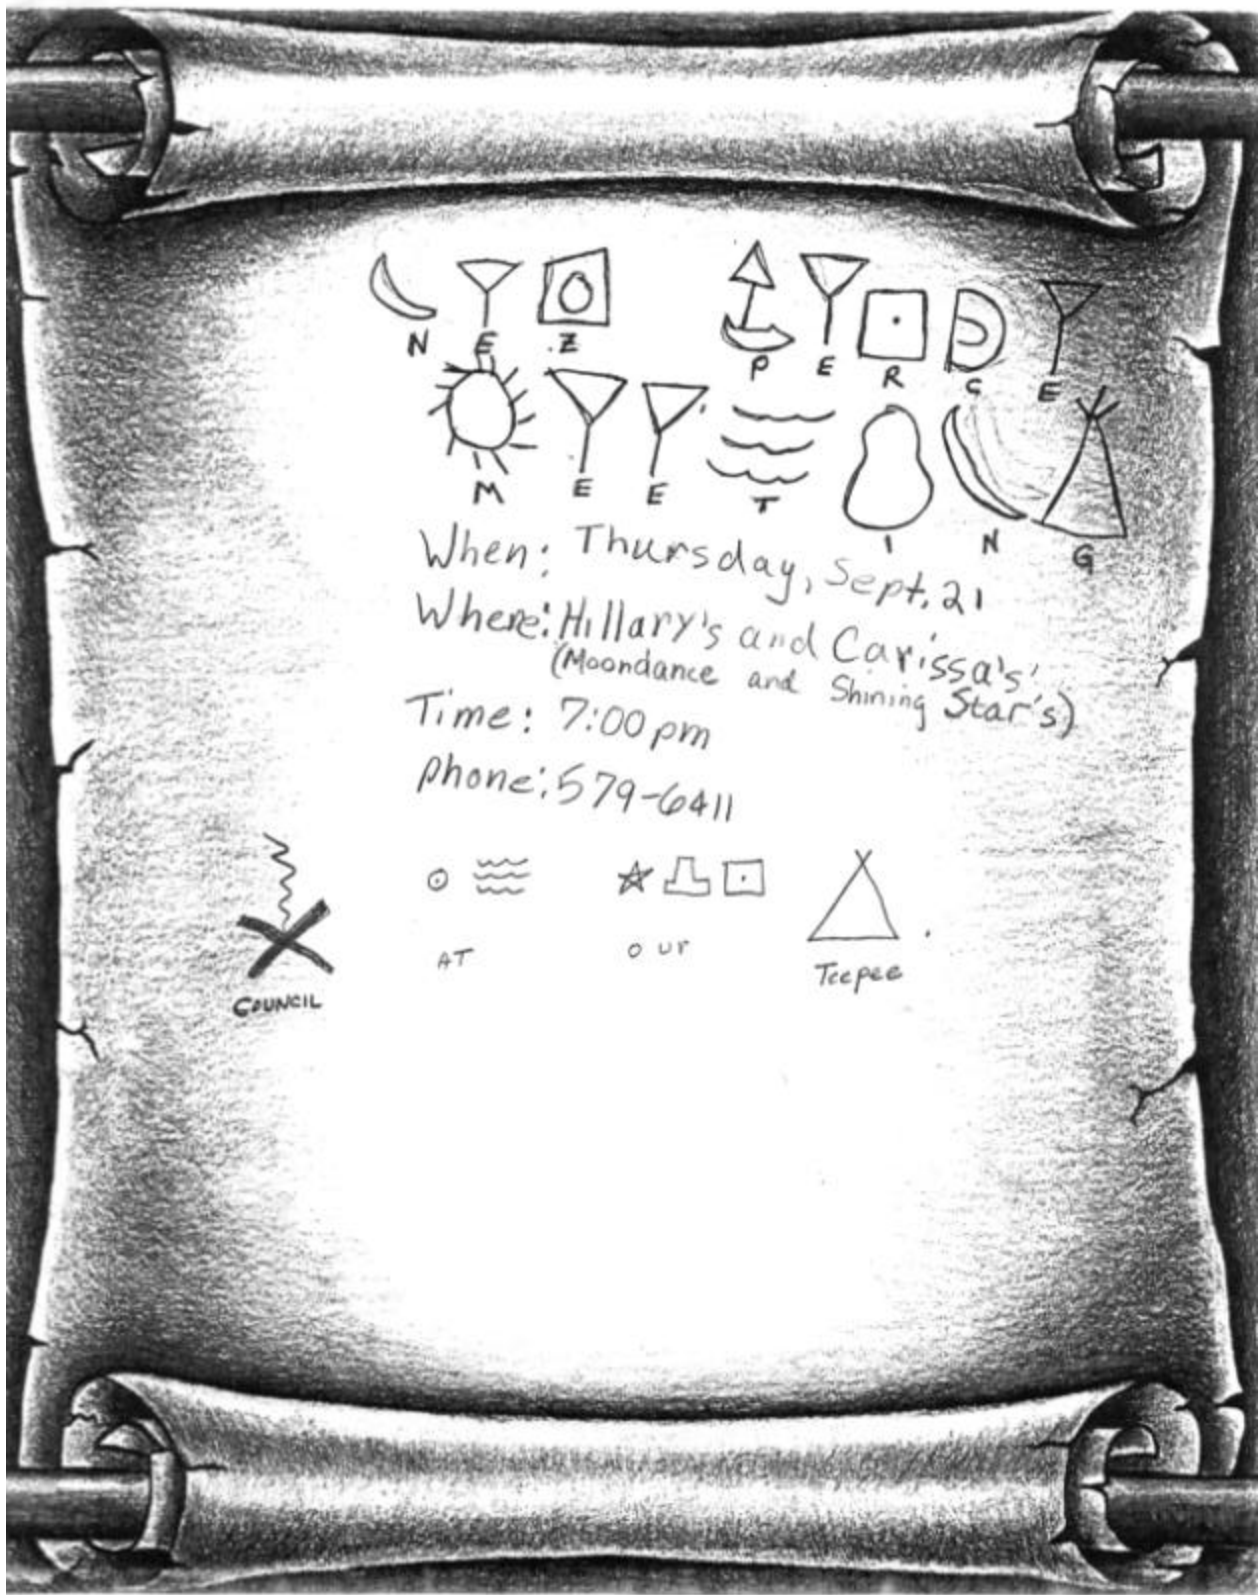 N E Z P E R C E
M E E T I N G
When: Thursday, Sept. 21
Where: Hillary's and Carissa's
(Moondance and Shining Star's)
Time: 7:00 pm
phone: 579-6411
COUNCIL AT OUR Teepee .